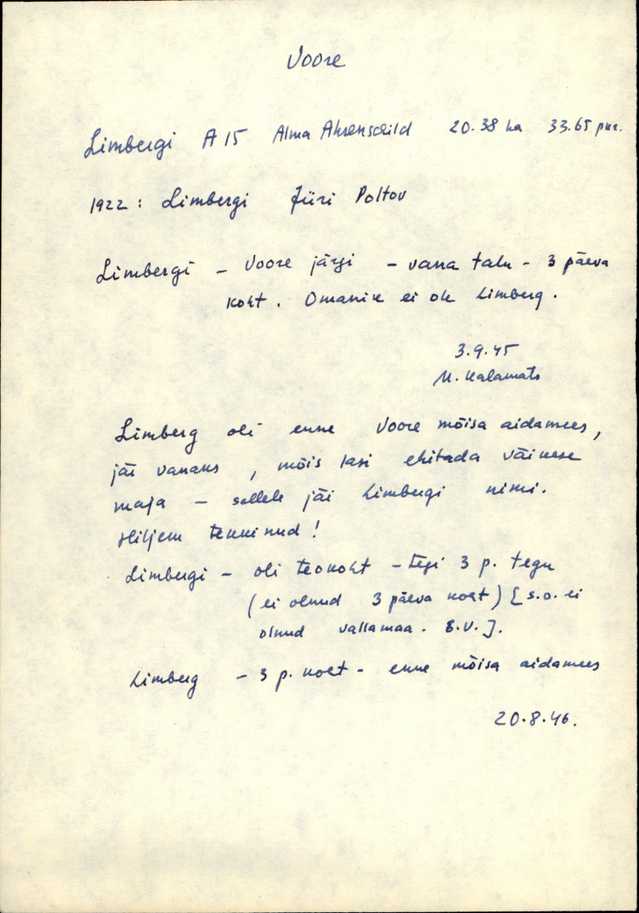 Voore
Limbergi A 15 Alma Ahrenscild 20.38 ha 33.65 pkr.
1922: Limbergi Jüri Poltov
Limbergi – Voore järgi – vana talu – 3 päeva
koht. Omanik ei ole Limberg.
3.9.45
M. Kalamats
Limberg oli enne Voore mõisa aidamees,
jäi vanaks, mõis lasi ehitada väikese
maja – sellele jäi Limbergi nimi.
Hiljem tekkinud!
Limbergi – oli teokoht – tegi 3 p. tegu
(ei olnud 3 päeva koht) [s.o. ei
olnud vallamaa. E.V.].
Limberg – 3 p. koht – enne mõisa aidamees
20.8.46.